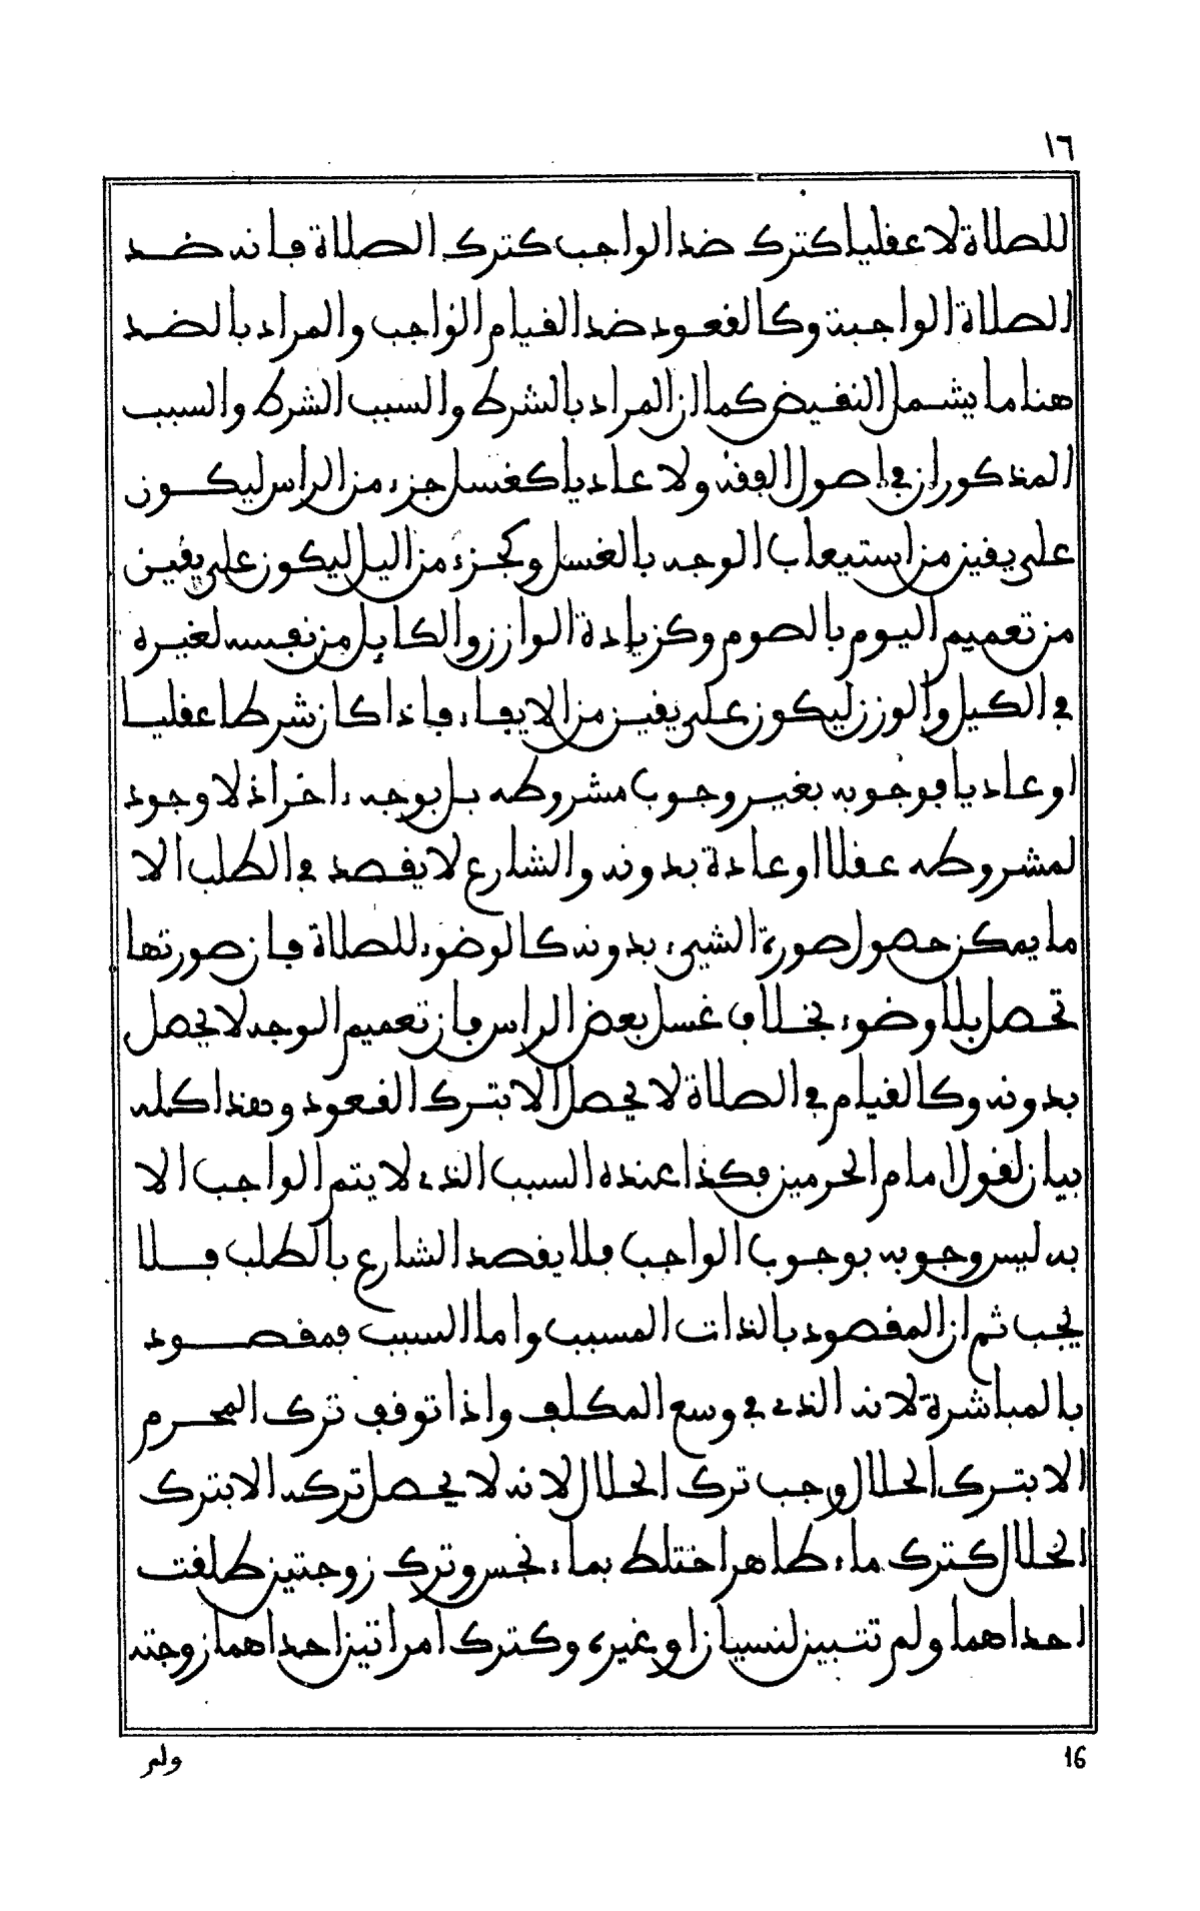 ١٦
للصلاة لا عقليا كترك ضد الواجب كترك الصلاة فانه ضد
الصلاة الواجبة وكالقعود ضد القيام الواجب والمراد بالضد
هنا ما يشمل النقيض كما ان المراد بالشرط والسبب الشرط والسبب
المذكوران في اصول الفقه ولا عاديا كغسل جزء من الراس ليكون
على يقين من استيعاب الوجه بالغسل وكجزء من اليل ليكون على يقين
من تعميم اليوم بالصوم وكزيادة الوازن والكايل من نفسه لغيره
في الكيل والوزن ليكون على يقين من الايفاء فاذا كان شرطا عقليا
او عاديا فوجوبه بغير وجوب مشروطه بل بوجه ءاخر اذ لا وجود
لمشروطه عقلا او عادة بدونه والشارع لا يقصد في الطلب الا
ما يمكن حصول صورة الشيء بدونه كالوضوء للصلاة فان صورتها
تحصل بلا وضوء بخلاف غسل بعض الراس فان تعميم الوجه لا يحصل
بدونه وكالقيام في الصلاة لا يحصل الا بترك القعود وهذا كله
بيان لقول امام الحرمين فكذا عنده السبب الذي لا يتم الواجب الا
به ليس وجوبه بوجوب الواجب فلا يقصد الشارع بالطلب فلا
يجب ثم ان المقصود بالذات المسبب واما السبب فمقصود
بالمباشرة لانه الذي في وسع المكلف واذا توقف ترك المحرم
الا بترك الحلال وجب ترك الحلال لانه لا يحصل تركه الا بترك
الحلال كترك ماء طاهر اختلط بماء نجس وترك زوجتين طلقت
احداهما ولم تتبين لنسيان او غيره وكترك امراتين احداهما زوجته
16
ولم